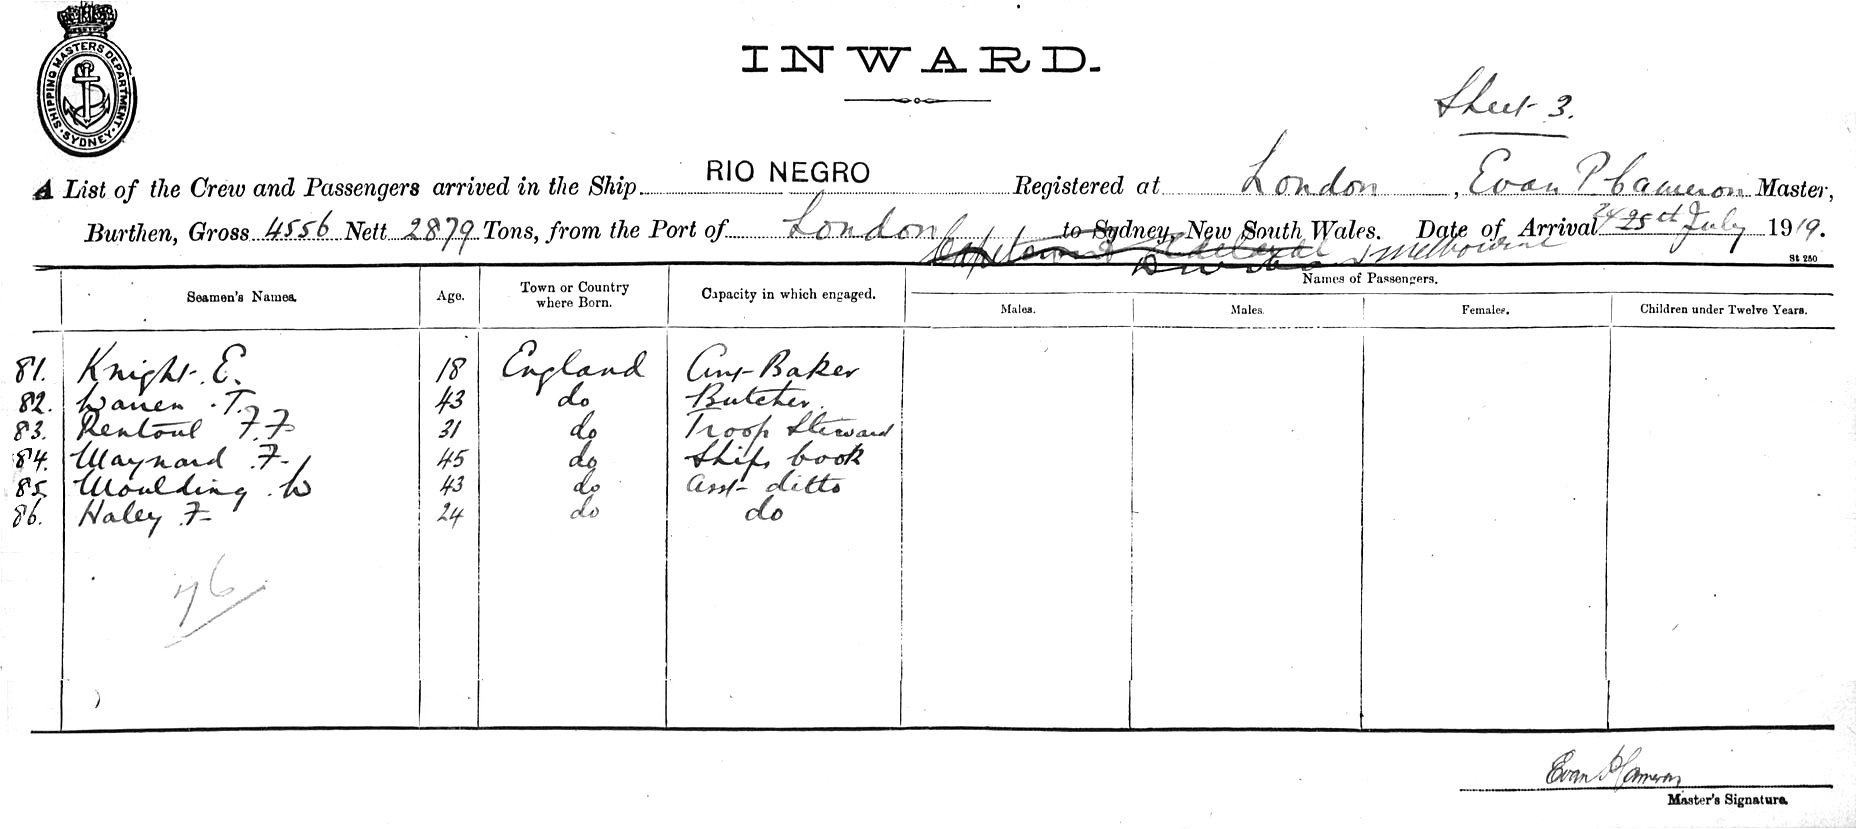 SHIPPING MASTERS DEPARTMENT · SYDNEY ·
INWARD.
Sheet 3.
A List of the Crew and Passengers arrived in the Ship RIO NEGRO Registered at London, Evan P Cameron Master,
Burthen, Gross 4556 Nett 2879 Tons, from the Port of London to Sydney, New South Wales. Date of Arrival 25th July 1919.
Melbourne
St 250
Seamen's Names. Age. Town or Country where Born. Capacity in which engaged. Names of Passengers.
Males. Males. Females. Children under Twelve Years.
81. Knight E. 18 England Baker
82. Warren T. 43 do Butcher
83. Rentoul F.F 31 do Troop Steward
84. Maynard F. 45 do Ships Cook
85. Moulding W 43 do Asst ditto
86. Haley F 24 do do
76
Evan P Cameron
Master's Signature.